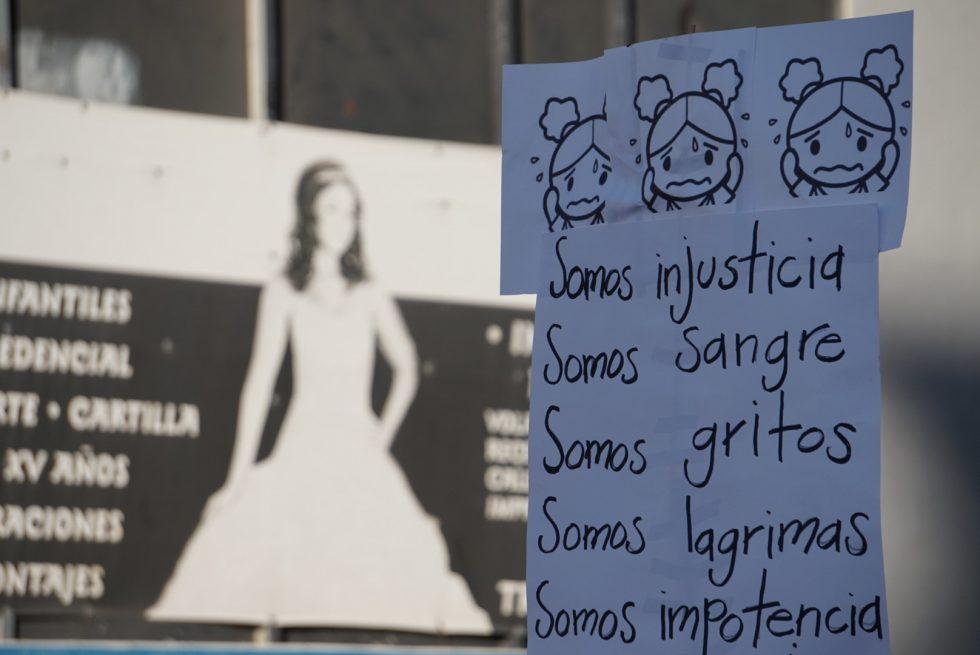 NFANTILES
EDENCIAL
RTE • CARTILLA
XV AÑOS
RACIONES
ONTAJES
Somos injusticia
Somos sangre
Somos gritos
Somos lagrimas
Somos impotencia